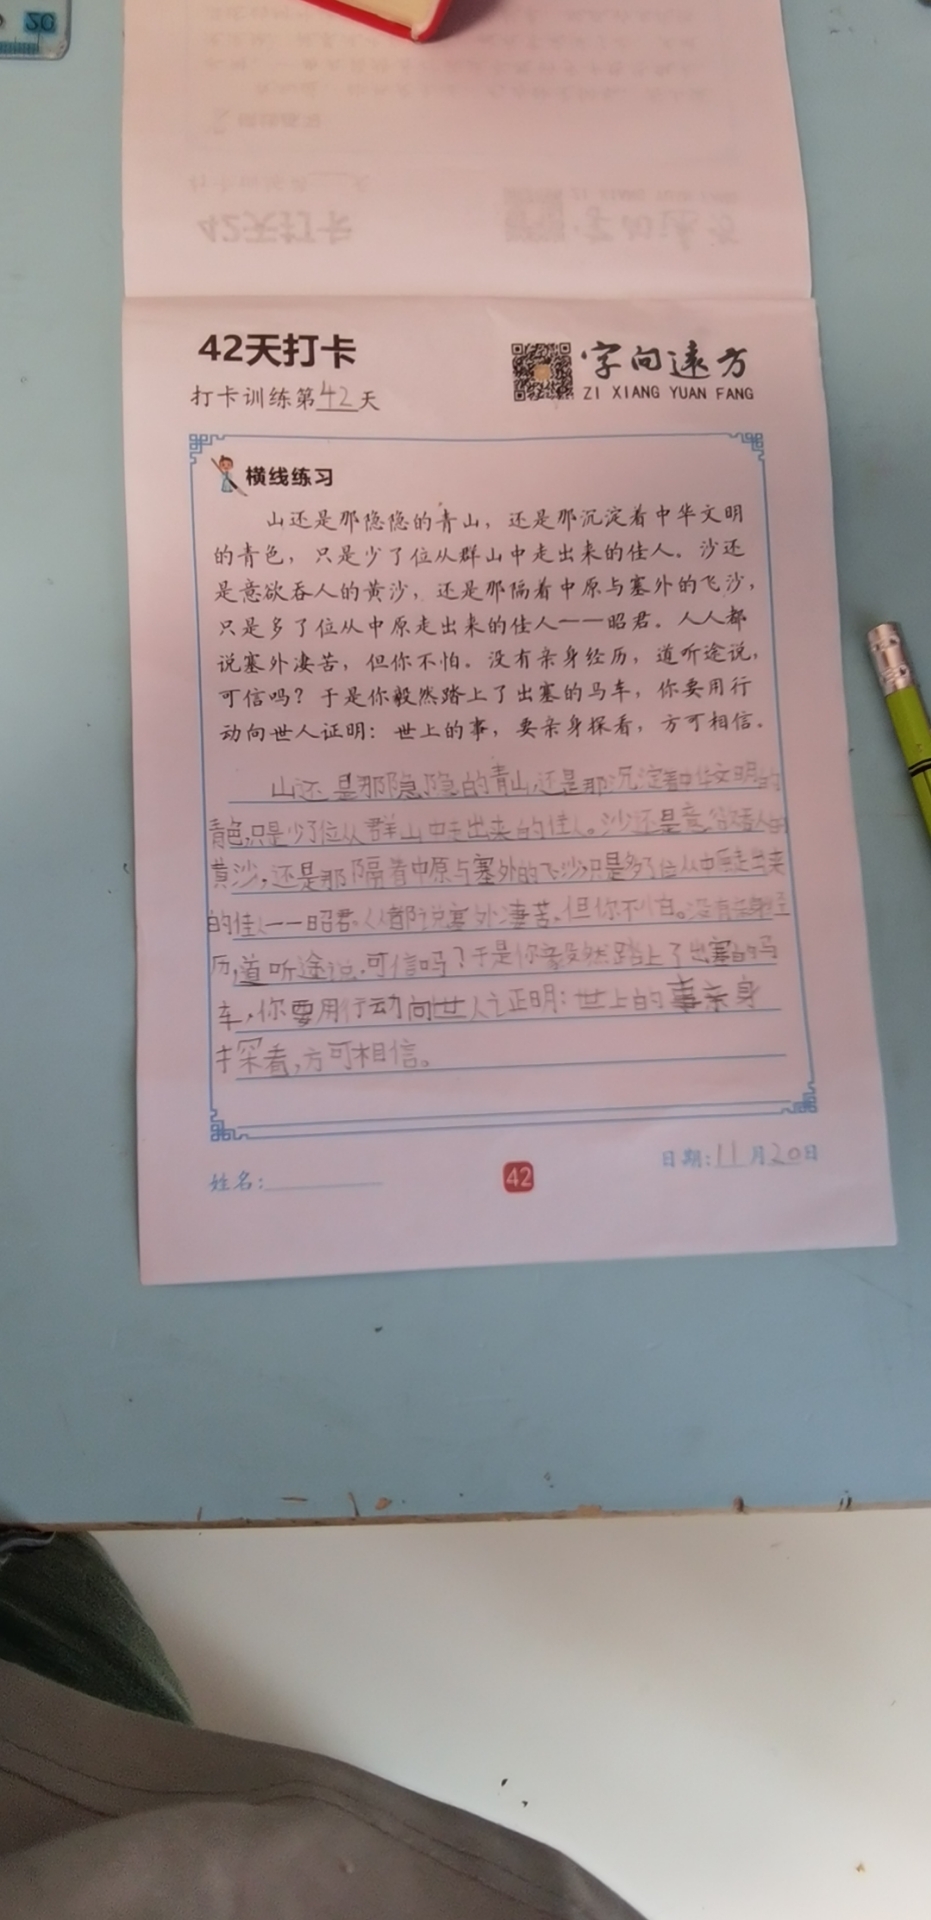 20
42天打卡
字向远方
ZI XIANG YUAN FANG
打卡训练第42天
横线练习
山还是那隐隐的青山，还是那沉淀着中华文明
的青色，只是少了位从群山中走出来的佳人。沙还
是意欲吞人的黄沙，还是那隔着中原与塞外的飞沙，
只是多了位从中原走出来的佳人——昭君。人人都
说塞外凄苦，但你不怕。没有亲身经历，道听途说，
可信吗？于是你毅然踏上了出塞的马车，你要用行
动向世人证明：世上的事，要亲身探看，方可相信。
山还是那隐隐的青山,还是那沉淀着中华文明的
青色,只是少了位从群山中走出来的佳人。沙还是意欲吞人的
黄沙,还是那隔着中原与塞外的飞沙,只是多了位从中原走出来
的佳人——昭君.人人都说塞外凄苦,但你不怕。没有亲身经
历,道听途说,可信吗?于是你毅然踏上了出塞的马
车,你要用行动向世人证明:世上的事亲身
探看,方可相信。
姓名:
42
日期:11月20日